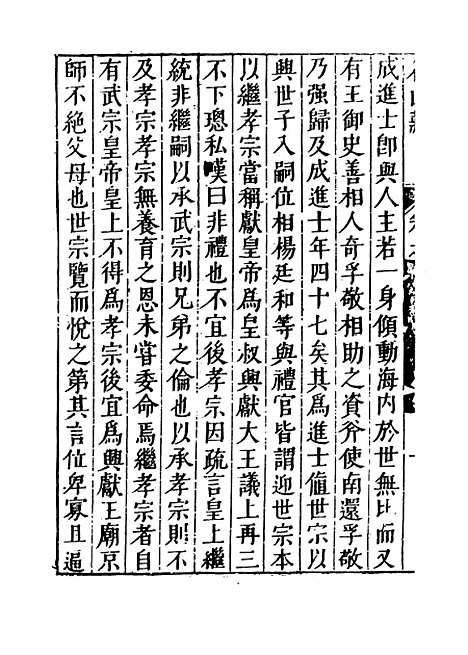 成進士卽與人主若一身傾動海内於世無比而又
有王御史善相人奇孚敬相助之資斧使南還孚敬
乃强歸及成進士年四十七矣其爲進士値世宗以
興世子入嗣位相楊廷和等與禮官皆謂迎世宗本
以繼孝宗當稱獻皇帝爲皇叔興獻大王議上再三
不下璁私嘆曰非禮也不宜後孝宗因疏言皇上繼
統非繼嗣以承武宗則兄弟之倫也以承孝宗則不
及孝宗孝宗無養育之恩未嘗委命焉繼孝宗者自
有武宗皇帝皇上不得爲孝宗後宜爲興獻王廟京
師不絶父母也世宗覽而悅之第其言位卑寡且逼